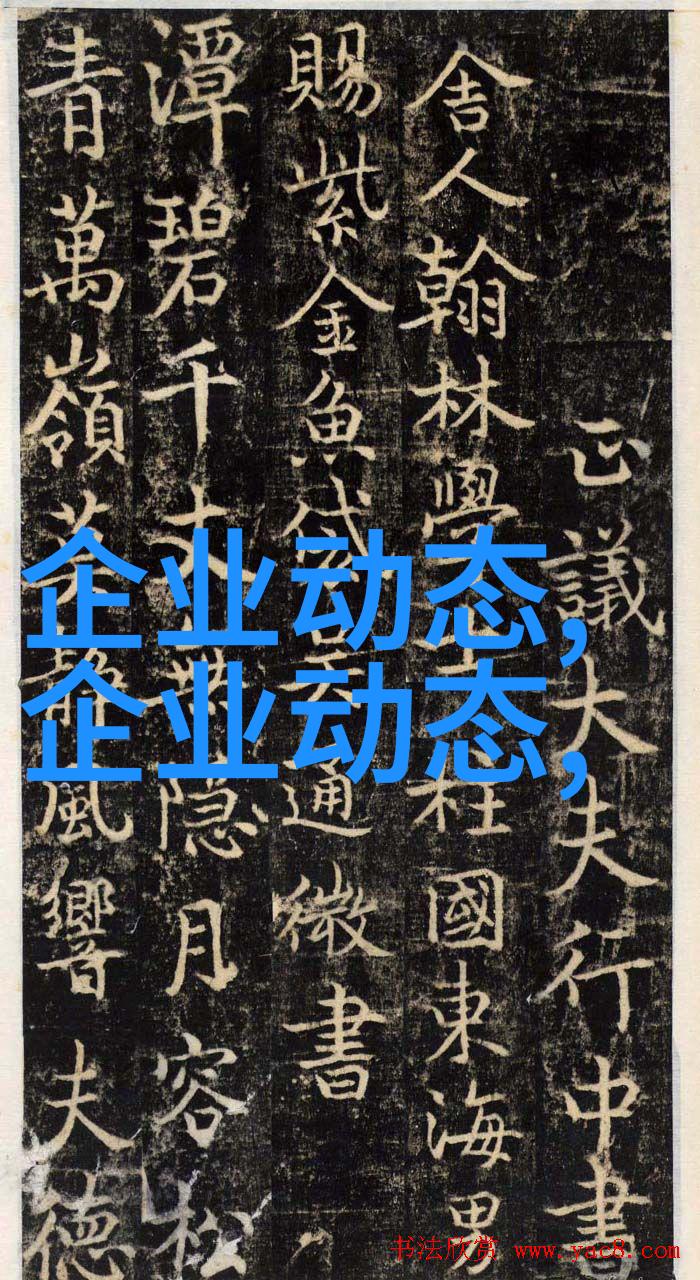 正議大夫行中書
舍人翰林學柱國東海男
賜紫金魚袋通微書
潭碧千丈無隐月容松
青萬嶺静風響夫德
企业动态,
企业动态,
书法欣赏 www.yac8.com